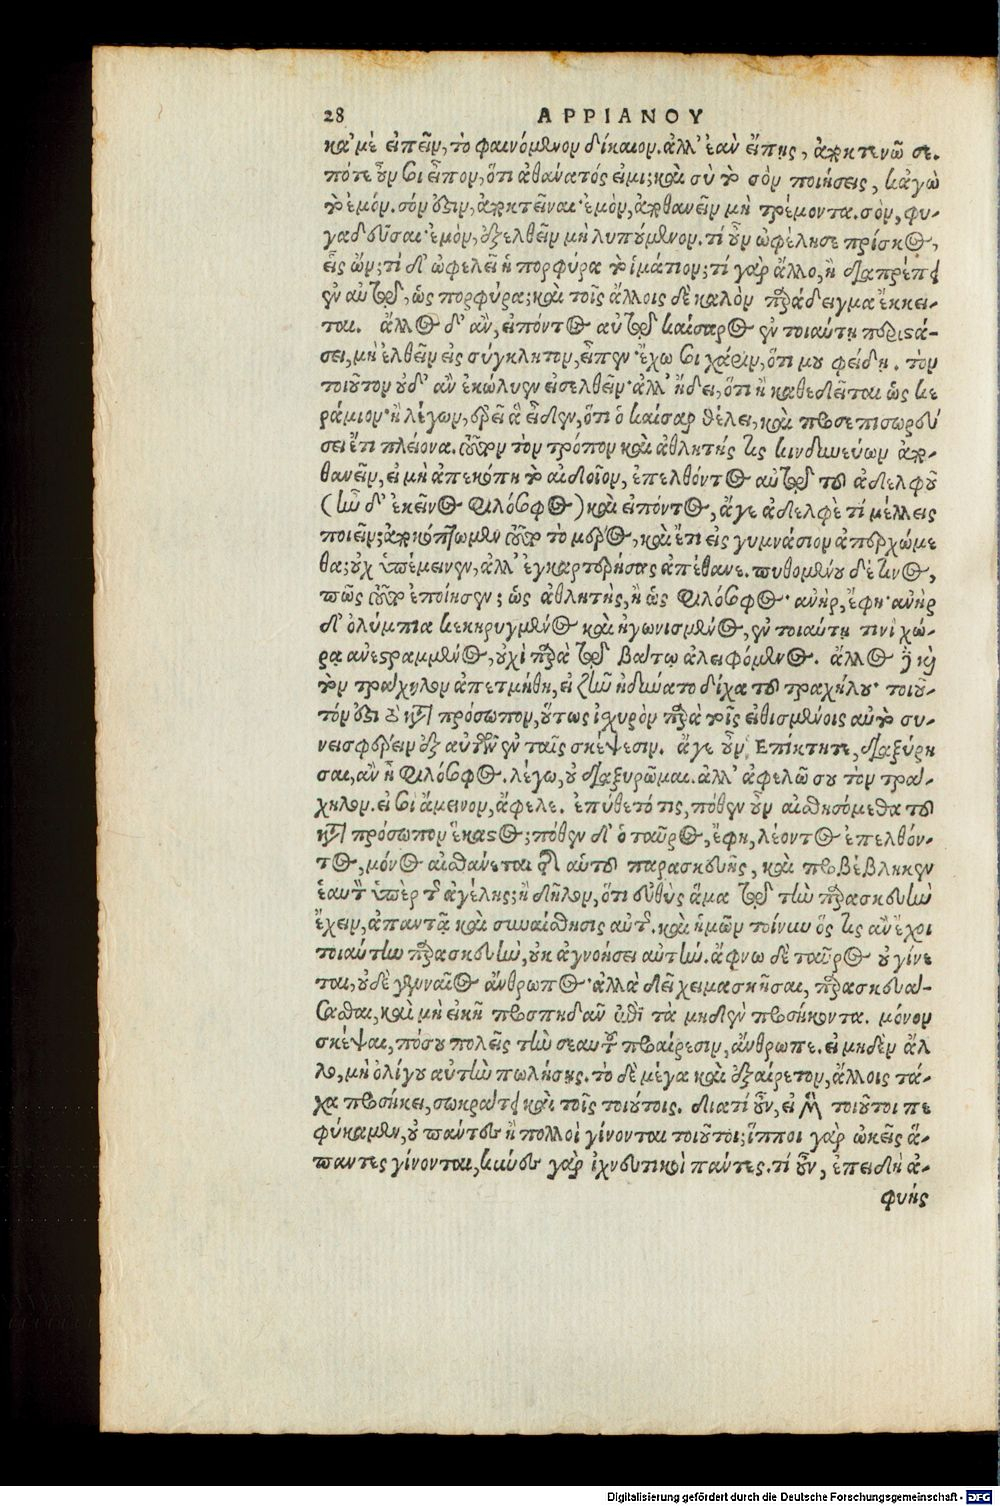 28 ΑΡΡΙΑΝΟΥ
κἀμὲ εἰπεῖν, τὸ φαινόμενον δίκαιον. ἀλλ' ἐὰν εἴπῃς, ἀποκτενῶ σε.
πότε οὖν σοι εἶπον, ὅτι ἀθάνατός εἰμι; καὶ σὺ τὸ σὸν ποιήσεις, κἀγὼ
τὸ ἐμόν. σόν ἐστιν, ἀποκτεῖναι· ἐμόν, ἀποθανεῖν μὴ τρέμοντα. σὸν, φυ-
γαδεῦσαι· ἐμὸν, ἐξελθεῖν μὴ λυπούμενον. τί οὖν ὠφέλησε πρίσκος,
εἷς ὤν; τί δ' ὠφελεῖ ἡ πορφύρα τὸ ἱμάτιον; τί γὰρ ἄλλο, ἢ διαπρέπει
ἐν αὐτῷ, ὡς πορφύρα; καὶ τοῖς ἄλλοις δὲ καλὸν παράδειγμα ἔκκει-
ται. ἄλλος δ' ἂν, εἰπόντος αὐτῷ καίσαρος ἐν τοιαύτῃ περιστά-
σει, μὴ ἐλθεῖν εἰς σύγκλητον, εἶπεν· ἔχω σοι χάριν, ὅτι μου φείδῃ. τὸν
τοιοῦτον οὐδ' ἂν ἐκώλυεν εἰσελθεῖν· ἀλλ' ᾔδει, ὅτι ἢ καθεδεῖται ὡς κε
ράμιον· ἢ λέγων, ἐρεῖ ἃ εἶδεν, ὅτι ὁ καίσαρ θέλει, καὶ προσεπισωρεύ
σει ἔτι πλείονα. τοῦτον τὸν τρόπον καὶ ἀθλητής τις κινδυνεύων ἀπο-
θανεῖν, εἰ μὴ ἀπεκόπη τὸ αἰδοῖον, ἐπελθόντος αὐτῷ τοῦ ἀδελφοῦ
(ἦν δ' ἐκεῖνος φιλόσοφος) καὶ εἰπόντος, ἄγε ἀδελφὲ τί μέλλεις
ποιεῖν; ἀποκόπτωμεν τοῦτο τὸ μέρος, καὶ ἔτι εἰς γυμνάσιον ἀπερχώμε
θα; οὐχ ὑπέμεινεν, ἀλλ' ἐγκαρτερήσας ἀπέθανε. πυθομένου δέ τινος,
πῶς τοῦτο ἐποίησεν; ὡς ἀθλητὴς, ἢ ὡς φιλόσοφος· ἀνὴρ, ἔφη· ἀνὴρ
δ' ὀλύμπια κεκηρυγμένος καὶ ἠγωνισμένος, ἐν τοιαύτῃ τινὶ χώ-
ρᾳ ἀνεστραμμένος, οὐχὶ παρὰ τῷ βάτῳ ἀλειφόμενος. ἄλλος δὲ καὶ
τὸν τράχηλον ἀπετμήθη, εἰ ζῆν ἠδύνατο δίχα τοῦ τραχήλου· τοιοῦ-
τόν ἐστι τὸ κατὰ πρόσωπον, οὕτως ἰσχυρὸν παρὰ τοῖς εἰθισμένοις αὐτὸ συ-
νεισφέρειν ἐξ αὐτῶν ἐν ταῖς σκέψεσιν. ἄγε οὖν Ἐπίκτητε, διαξύρη
σαι, ἂν ᾖ φιλόσοφος. λέγω, οὐ διαξυρῶμαι. ἀλλ' ἀφελῶ σου τὸν τρά-
χηλον. εἰ σοὶ ἄμεινον, ἄφελε. ἐπύθετό τις, πόθεν οὖν αἰσθησόμεθα τοῦ
κατὰ πρόσωπον ἕκαστος; πόθεν δ' ὁ ταῦρος, ἔφη, λέοντος ἐπελθόν-
τος, μόνος αἰσθάνεται τῆς αὑτοῦ παρασκευῆς, καὶ προβέβληκεν
ἑαυτὸν ὑπὲρ τῆς ἀγέλης; ἢ δῆλον, ὅτι εὐθὺς ἅμα τῷ τὴν παρασκευὴν
ἔχειν, ἀπαντᾷ καὶ συναίσθησις αὐτῆς. καὶ ἡμῶν τοίνυν ὅς τις ἂν ἔχοι
τοιαύτην παρασκευὴν, οὐκ ἀγνοήσει αὐτήν. ἄφνω δὲ ταῦρος οὐ γίνε
ται, οὐδὲ γενναῖος ἄνθρωπος· ἀλλὰ δεῖ χειμασκῆσαι, παρασκευά-
σασθαι, καὶ μὴ εἰκῇ προσπηδᾶν ἐπὶ τὰ μηδὲν προσήκοντα. μόνον
σκέψαι, πόσου πωλεῖς τὴν σεαυτοῦ προαίρεσιν, ἄνθρωπε. εἰ μηδὲν ἄλ
λο, μὴ ὀλίγου αὐτὴν πωλήσῃς. τὸ δὲ μέγα καὶ ἐξαίρετον, ἄλλοις τά-
χα προσήκει, σωκράτει καὶ τοῖς τοιούτοις. διατί οὖν, εἰ πρὸς τοιοῦτοι πε
φύκαμεν, οὐ πάντες ἢ πολλοὶ γίνονται τοιοῦτοι; ἵπποι γὰρ ὠκεῖς ἅ-
παντες γίνονται, κύνες γὰρ ἰχνευτικοὶ πάντες. τί οὖν, ἐπειδὴ ἀ-
φυὴς
Digitalisierung gefördert durch die Deutsche Forschungsgemeinschaft - DFG